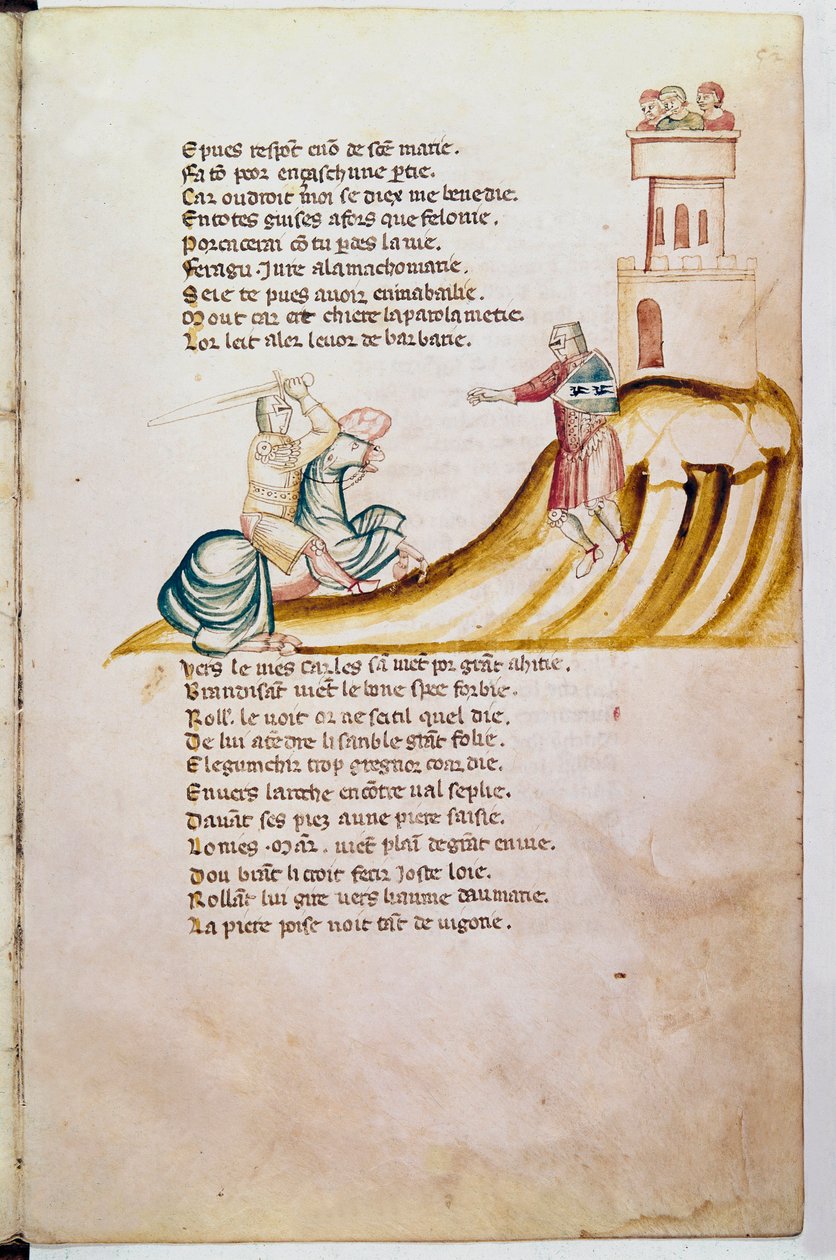 E pues respōt cūō de sc̄e marie.
Fa tō poor en gasch une ꝑtie.
Car ou droit moi se diex me benedie.
En totes guises afors que felonie.
Porcacerai cō tu ꝑdes la vie.
Feragu. Jure ala machomarie.
Se ie te pues avoir en ma bailie.
Mout car ert chiere la parola metie.
Lor leit aler levor de barbarie.
Vers le nies Carles sā viēt por grāt ahitie.
Brandisāt viēt le bone spee forbie.
Roll'. le voit or ne seit il quel die.
De lui atēdre li sanble grāt folie.
E le gunchir trop gregnor coardie.
Envers la roche encōtre val se plie.
Davāt ses piez a une piere saisie.
Lo nies. Mār. viēt plaī de grāt envie.
Dou brāt li croit ferir Joste loie.
Rollāt lui gite vers hiaume daumarie.
La piere poise noit tāt de vigorie.